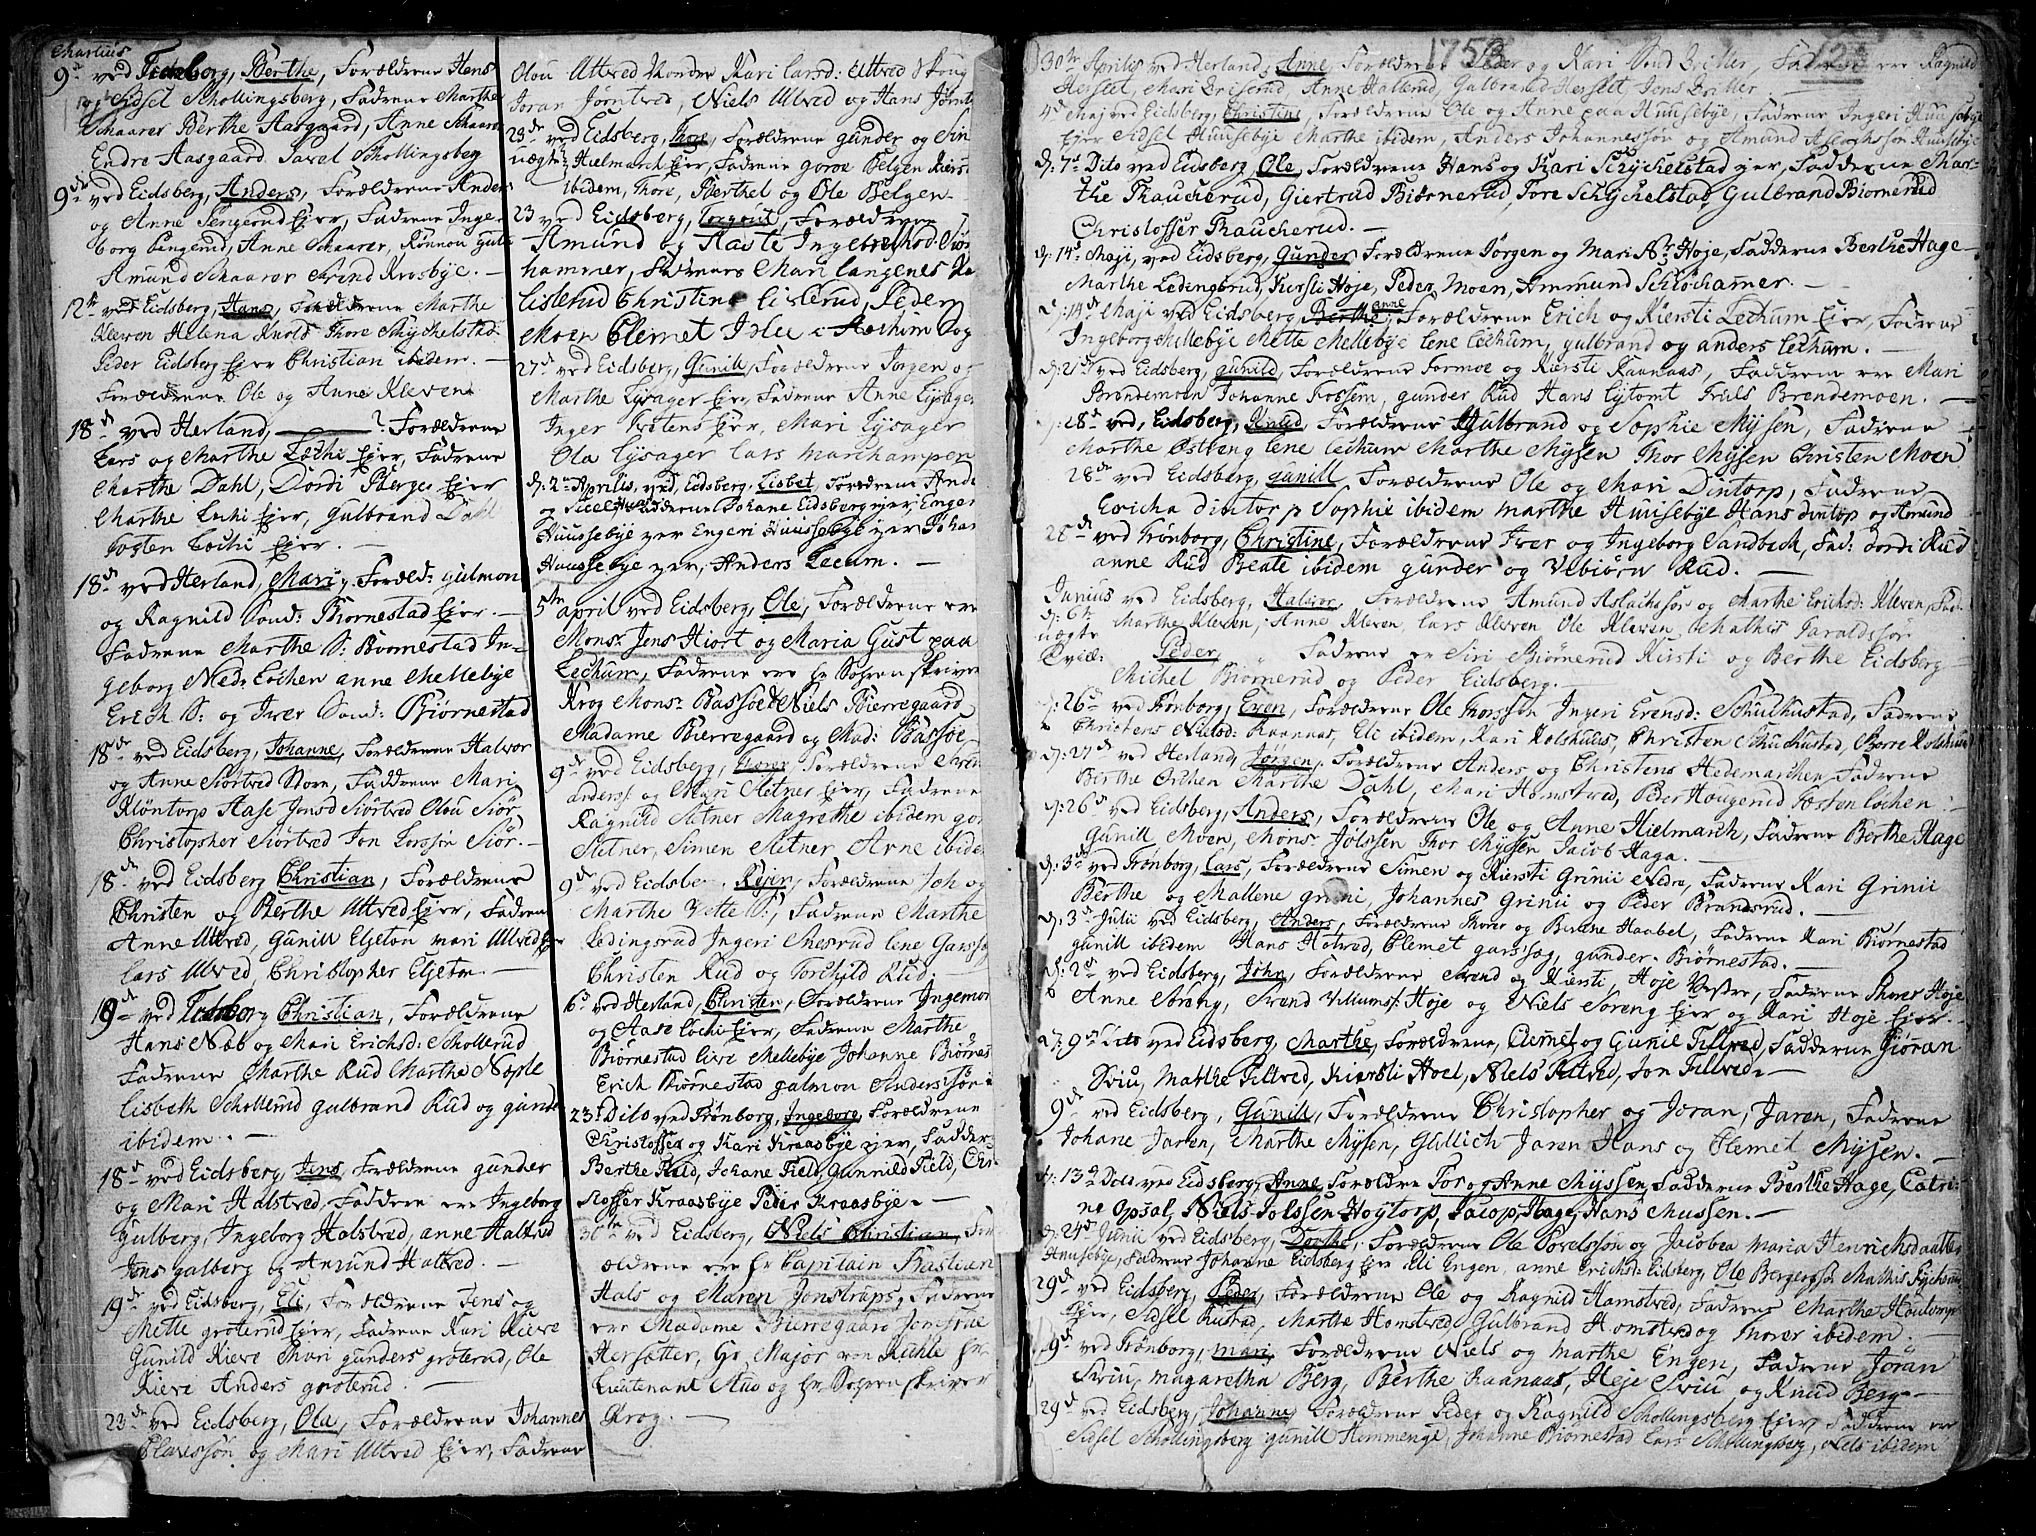 Martius
9de ved Trønborg, Berthe, Forældrene Hens
og Sidsel Schollingsberg, Fadrene Marthe
Schaarer Berthe Aasgaard, Anne Schaarer
Endre Aasgaard. Taral Schollingsberg
9de ved Eidsberg, Anders, Forældrene Anders
og Anne Tengerud Ejer, Fadrene Inge-
borg Tengerud, Anne Schaarer, Rønnou
Amund Schaarer Svend Krosbye. —
12te ved Eidsberg, Hans, Forældrene Marthe
Kleven Helena Knold Thore Schychelstad
Peder Eidsberg Ejer Christian ibidem. —
Forældrene Ole og Anne Kleven
18de ved Herland, ——— ? Forældrene
Lars og Marthe Lechi Ejer, Fadrene
Marthe Dahl, Dordi Berger Ejer
Marthe Lechi Ejer, Gulbrand Dahl
Tosten Lochi Ejer. —
18de ved Herland, Mari, Foræld: Gulmon
og Ragnild Sond: Biørnestad Ejer. —
Fadrene Marthe S: Biørnestad In-
geborg Ned: Lochen anne Mellebye
Erich S: og Iver Sond: Biørnestad
18de ved Eidsberg, Johanne, Forældrene Halvor
og Anne Siørtved Store, Faddrene Mari
Kløntorp Aase Jonsd Siørtved Olou Siør
Christopher Siørtved Jon Larssøn Siør. —
18de ved Eidsberg Christian, Forældrene
Christen og Berthe Ultved Ejer, Fadrene
Anne Ultved, Gunill Eljeton Mari Ultved Ejer
Lars Ulved, Christopher Eljeton. —
19de ved Trønborg Christian, Forældrene
Hans Næb og Mari Erichsd: Schollerud
Fadrene Marthe Rud Marthe Næple
Lisbeth Schollerud Gulbrand Rud og Gunder
ibidem. —
18de ved Eidsberg, Jens, Forældrene Gunder
og Mari Halstved, Faddrene ere Ingeborg
Gulberg, Ingeborg Halstved, anne Halstved
Jens Galberg og Amund Halstved. —
19de ved Eidsberg, Eli, Forældrene Jens og
Mette Groterud Ejer, Fadrene Kari Kieve
Gunild Kieve Thari Gunders Groterud, Ole
Kieve Anders Groterud. —
23de ved Eidsberg, Ola, Forældrene Johannes
Clavessøn og Mari Ultved Ejer, Fadrene
Olou Ultved Nordre Kari Larsd: Ultved Skoug
Joran Jørntved, Niels Ulved og Hans Jørnt
28de ved Eidsberg, Thore, Forældrene Gunder og Sin
uægte: Hielmarch Ejer, Fadrene Goroe Belgen Kiers
ibidem, Thore, Berthel og Ole Belgen
23 ved Eidsberg, Torgrut, Forældrene
Amund og Aaste Ingebrethsd: Siør
hammer, Fadrenes Mari Langenes Ka
Lislerud Christine Lislerud, Peder
Moen Clemet Islee Jochim Sog
27de ved Eidsberg, Gunill, Forældrene Jørgen og
Marthe Lysager Ejer, Fadrene Anne Lysager
Inger Krotens Ejer, Mari Lysager
Ola Lysager Lars Marchampen
d: 2de Aprilis, ved, Eidsberg, Lisbet, Forældrene Ande
og Sidsel Huus Fadderne Johane Eidsberg ejer, Enger
Huussebye ejer Engeri Huussebye ejer Johan
Huussebye ejer, Anders Lecum. —
5te april ved Eidsberg, Ole, Forældrene ere
Mons:r Jens Hiort og Maria Gust paa
Lechum, Fadrene ere Hr Sorenskriver
Krog Mons:r Bassøe Niels Bierregaard
Madame Bierregaard og Mad: Bassøe
9de ved Eidsberg, Thorer Forældrene Svend
anderss og Mari Sletner Ejer, Fadrene
Ragnild Sletner Magrethe ibidem Gor
Sletner, Simen Sletner Arne ibidem
9de ved Eidsberg, Rejer, Forældrene Joh og
Marthe Vette S:, Fadrene Marthe
Ledingsrud Ingeri Snesrud Lene Garsseg
Christen Rud og Torchild Rud. —
6te ved Herland, Christen, Forældrene Ingemor
og Aase Lochi Ejer, Fadrene Marthe
Biørnestad Live Mellebye Johanne Biørnes
Erich Biørnestad Galmon Anderssøn i
23de Dito ved Trønborg, Ingeborg, Forældrene
Christoffer og Kari Kraasbye ejer, Fadder-
Berthe Fæld, Johane Field, Gunnild Field, Chri-
stoffer Kraasbye Peder Kraasbye. —
30te ved Eidsberg, Niels Christian, For
ældrene ere Hr Capitain Bastian
Hals og Maren Jonstrups, Fadrene
ere Madame Bierregaard Jomfrue
Hersætter, Hr Major von Kahle Hr
Lieutenant Aud og Hr Sorenskriver
Krog. —
1753
123
30te Aprilis ved Herland, Anne, Forældrene Peder og Kari Sond Driller, Fadrene ere Ragnild
Herseet, Mari Dreserud, Anne Hallerud, Gulbrand Herseet Jens Driller
4de Maj ved Eidsberg, Christine, Forældrene Ole og Anne paa Huusebye, Fadrene Ingeri Huusebye
Ejer Sidsel Huusebye Marthe ibidem, Anders Johannessøn og Amund Aslachssøn Huusebye
d: 7de Dito ved Eidsberg, Ole, Forældrene Hans og Kari Schychelstad ejer, Faddrene Mar-
the Thaucherud, Giertrud Biørnerud, Tore Schychelstad, Gulbrand Biørnerud
Christoffer Thaucherud. —
d: 14de Maji, ved Eidsberg, Gunder, Forældrene Jørgen og Mari N: Hoje, Fadderne Berthe Hage
Marthe Ledingsrud, Kersti Hoje, Peder Moen, Ammund Schiøshamer. —
d: 14de Maji ved Eidsberg, Berthe anne, Forældrene Erich og Kiersti Lechum Ejer, Fadrene
Ingeborg Mellebye Mette Mellebye Lene Lechum, Gulbrand og Anders Lechum. —
d: 21de ved Eidsberg, Gunild, Forældrene Tormoe og Kiersti Raanaas, Faddrene ere Mari
Brendemoen Johanne Fossem, Gunder Rud Hans Lytomt Truls Brendemoen. —
d: 28de ved, Eidsberg, Knud, Forældrene Gulbrand og Sophie Mysen, Fadrene
Marthe Østbeng Lene Lechum Marthe Mysen Thor Mysen Christen Moen
28de ved Eidsberg, Gunill Forældrene Ole og Mari Dintorp, Fadrene
Ericha Dintorp Sophie ibidem Marthe Huusebye Hans Dintop og Amund
28de ved Trønborg, Christine, Forældrene Iver og Ingeborg Sandbech, Fad: Dordi Rud
anne Rud Beate ibidem Gunder og Vebiørn Rud. —
Junius
d: 6te ved Eidsberg, Halvor, Forældrene Amund Aslachssøn og Marthe Erichsd: Kleven, Fad:
Marthe Kleven, Anne Kleven, Lars Kleven Ole Kleven, Mathis Taraldssøn
uægte
Qviæ: Peder, Fadrene er Siri Biørnerud Kirsti og Berthe Eidsberg
Michel Biørnerud og Peder Eidsberg. —
d: 26de ved Trønborg, Even, Forældrene Ole Thorssøn Ingeri Evensd: Schulhustad, Fadrene
Christens Nielsd: Raanaas, Eli ibidem, Kari Kolshuus, Christen Schulhustad, Borre Kolshuus
d: 27de ved Herland, Jørgen, Forældrene Anders og Christens Hedemarchen Fadrene
Birthe Orchen Marthe Dahl, Mari Homstved, Peder Hougerud Tosten Lochen
d: 26de ved Eidsberg, Anders, Forældrene Ole og Anne Hielmarch, Fadrene Berthe Hage
Gunill, Moen, Mons Jolssen Thor Myssen Jacob Haga. —
d: 3de ved Trønborg, Lars, Forældrene Simen og Kiersti Grinii Nedre, Fadrene Kari Grinii
Berthe og Mallene Grini, Johannes Grinii og Peder Brandsrud. —
d: 3de Julii ved Eidsberg, Anders, Forældrene Thorer og Berthe Haabel, Fadrene Kari Biørnestad
Gunill ibidem Hans Holtved, Clemet Garsseg, Gunder Biørnestad. —
d: 2de ved Eidsberg, John, Forældrene Svend og Kiersti, Hoje Vestre, Fadrene Thorer Hoje
Anne Soreng, Svend Villumss: Hoje og Niels Soreng Ejer og Kari Hoje Ejer. —
d: 9de Dito ved Eidsberg, Marthe, Forældrene, Clemet og Gunil Tiltved, Fadderne Gjøran
Sviu, Marthe Tiltved, Kiersti Hoel, Niels Tiltved, Jon Tiltved. —
9de ved Eidsberg, Gunill, Forældrene Christopher og Joran, Jaren, Fadrene
Johane Jaren, Marthe Mysen, Gullich Jaren Hans og Clemet Mysen. —
d: 13de Dito ved Eidsberg, Anne, Forældre Tor og Anne Myssen, Fadderne Berthe Hage, Catri-
ne Opsal, Niels Jolssen Hoytorp, Jacop Hage, Hans Mussen. —
d: 24de Junii ved Eidsberg, Dorthe, Forældrene Ole Torelssøn og Jacobea Maria Henrichsdaatter
Huusebye, Fadrene Johanne Eidsberg Ejer Eli Engen, Anne Erichsd: Eidsberg, Ole Bergerssøn Mathis
29de ved Eidsberg, Peder, Forældrene Ole og Ragnild Hamstved, Fadrene Marthe
Ejer, Sidsel Rustad, Marthe Homstved, Gulbrand Homstved og Thorer ibidem. —
9de ved Trønborg, Mari, Forældrene Niels og Marthe Engen, Fadrene Joran
Sviu, Magaretha Berg, Berthe Raanaas, Heje Sviu, og Knud Berg —
29de ved Eidsberg, Johanne, Forældrene Peder og Ragnild Schollingsberg Ejer, Fadderne ere
Sidsel Schollingsberg Gunill Hemmenge, Johanne Biørnestad Lars Schollingsberg, Niels ibidem